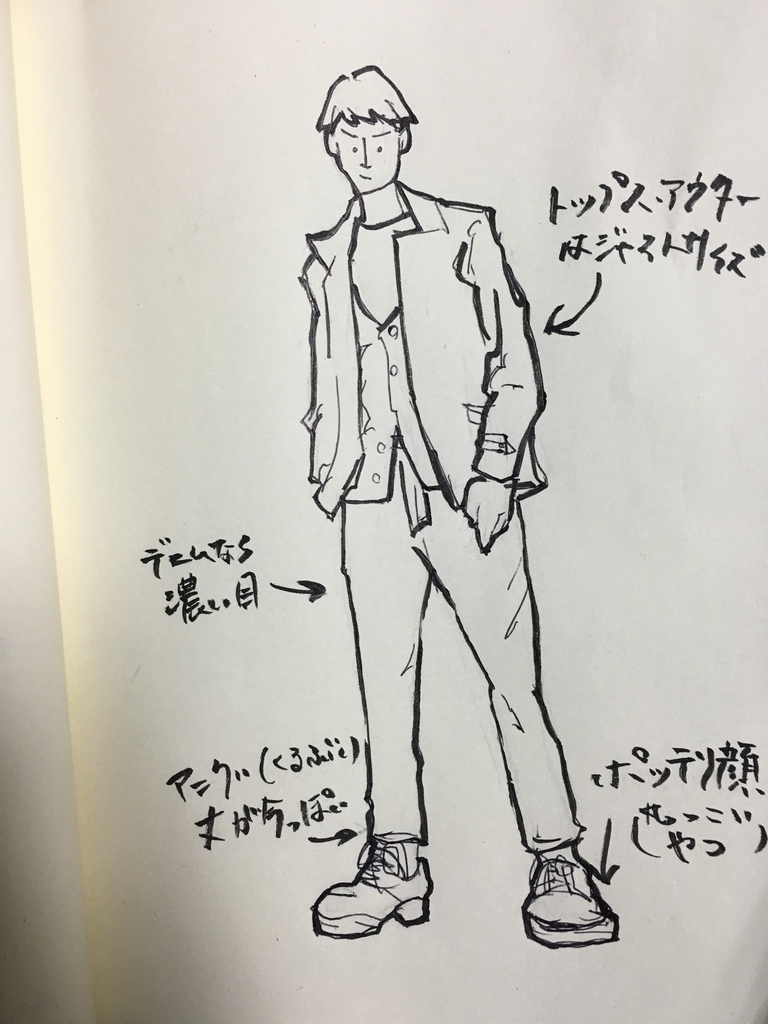 トップス、アウター
はジャストサイズ
デニムなら
濃い目
アンクル(くるぶし)
丈が今っぽい
ポッテリ顔
(丸っこい
やつ)